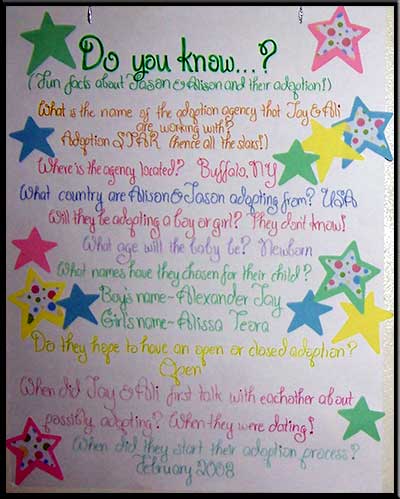 Do you know...?
(Fun facts about Jason & Alison and their adoption!)
What is the name of the adoption agency that Jay & Ali
are working with?
Adoption STAR (hence all the stars!)
Where is the agency located? Buffalo, NY
What country are Alison & Jason adopting from? USA
Will they be adopting a boy or girl? They don't know!
What age will the baby be? Newborn
What names have they chosen for their child?
Boy's name - Alexander Jay
Girl's name - Alissa Teora
Do they hope to have an open or closed adoption?
Open
When did Jay & Ali first talk with eachother about
possibly adopting? When they were dating!
When did they start their adoption process?
February 2008